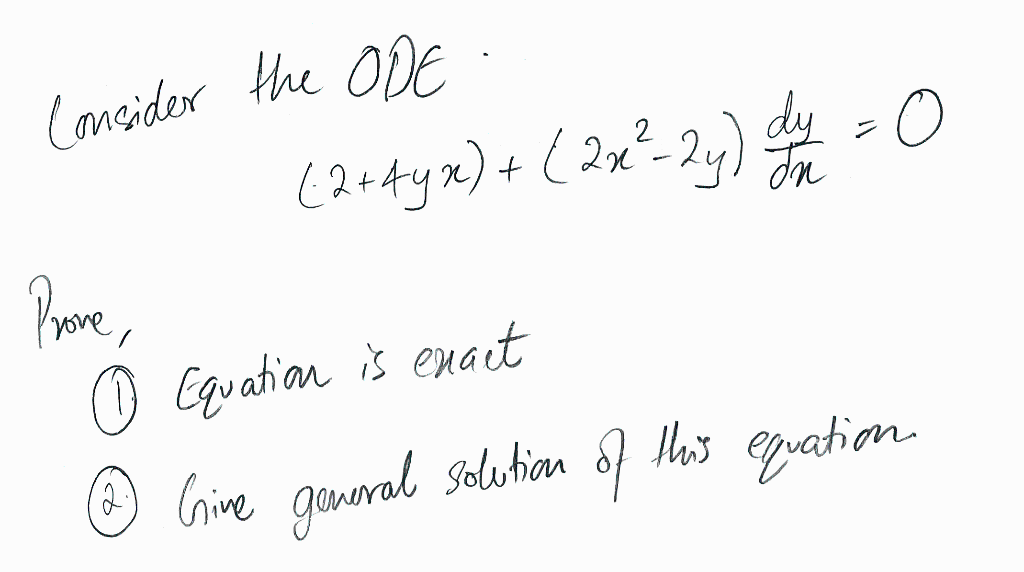 Consider the ODE.
(2+4yx) + (2x²-2y) dy/dx = 0
Prove,
① Equation is exact
② Give general solution of this equation.